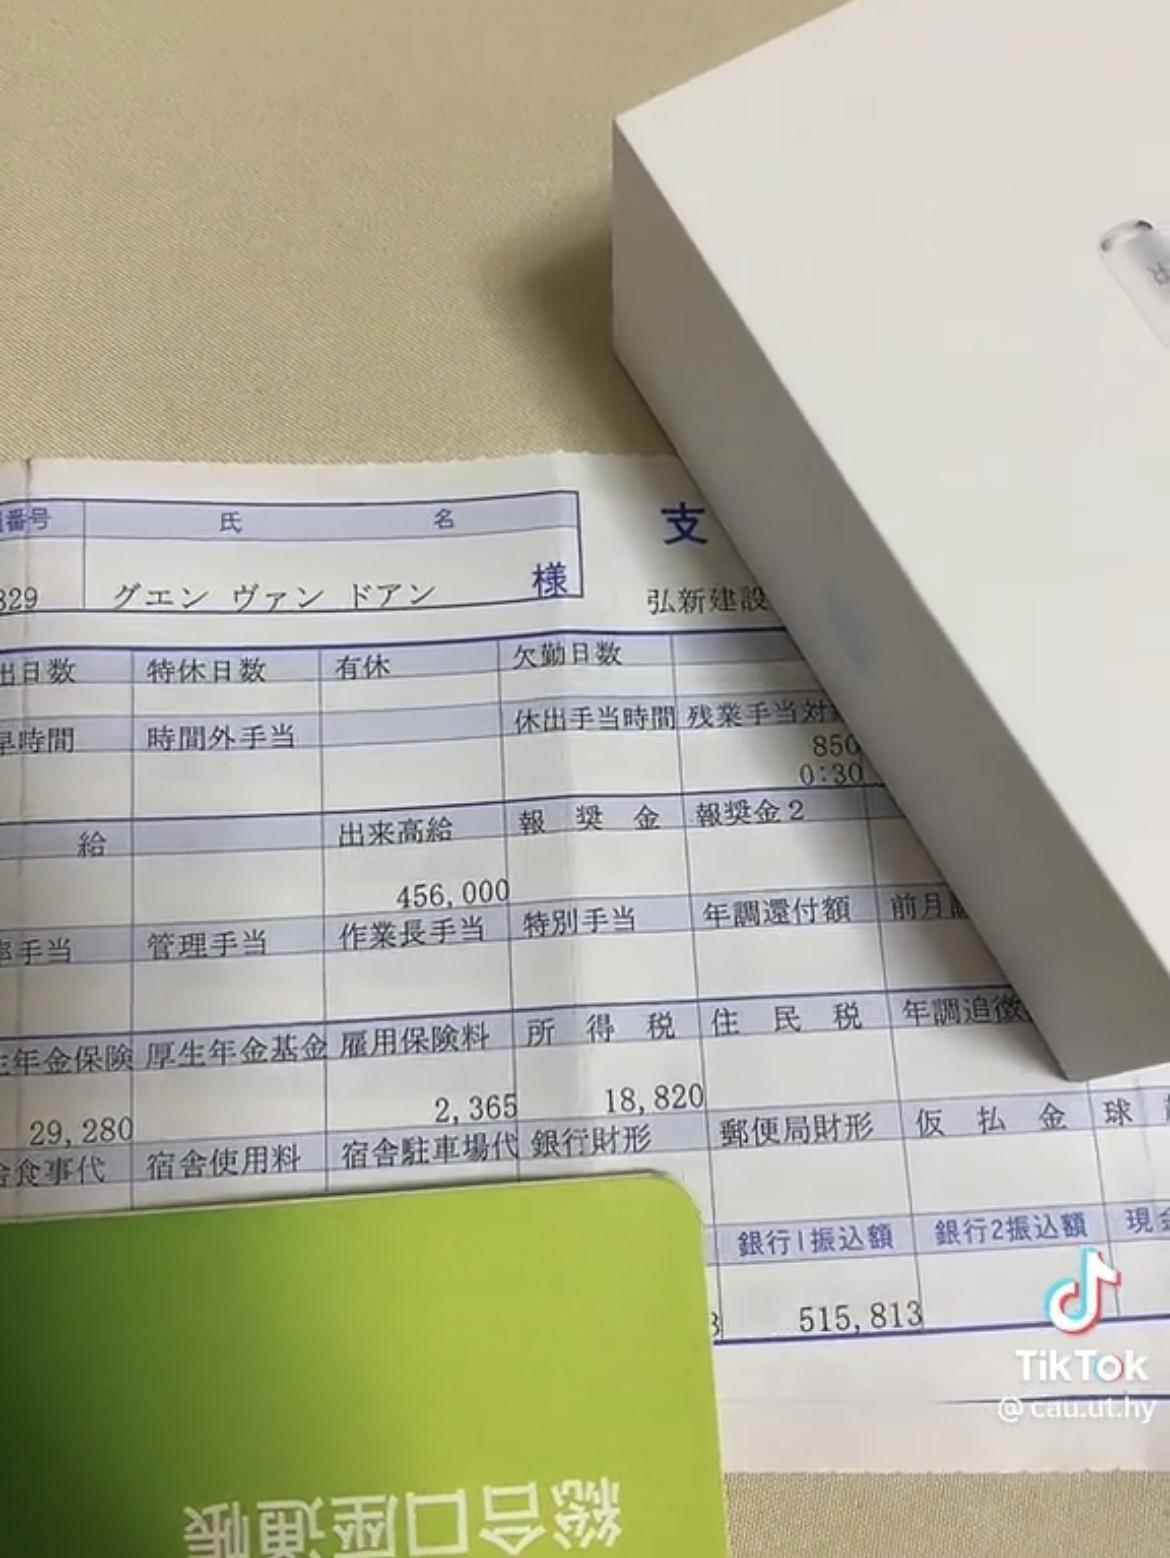 番号 氏 名
329 グエン ヴァン ドアン 様
支
弘新建設
出日数 特休日数 有休 欠勤日数
早時間 時間外手当 休出手当時間 残業手当対
850
0:30
給 出来高給 報奨金 報奨金2
456,000
手当 管理手当 作業長手当 特別手当 年調還付額 前月
年金保険 厚生年金基金 雇用保険料 所得税 住民税 年調追徴
29,280 2,365 18,820
食事代 宿舎使用料 宿舎駐車場代 銀行財形 郵便局財形 仮払金 球
銀行1振込額 銀行2振込額 現金
3 515,813
総合口座通帳
TikTok
@cau.ut.hy